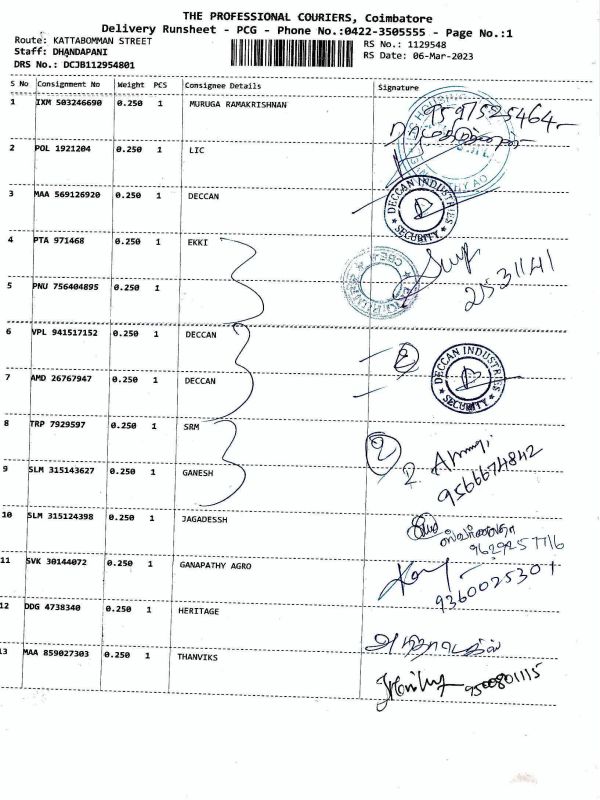 THE PROFESSIONAL COURIERS, Coimbatore
Delivery Runsheet - PCG - Phone No.:0422-3505555 - Page No.:1
Route: KATTABOMMAN STREET
Staff: DHANDAPANI
DRS No.: DCJB112954801
RS No.: 1129548
RS Date: 06-Mar-2023
S No Consignment No Weight PCS Consignee Details Signature
1 IXM 503246690 0.250 1 MURUGA RAMAKRISHNAN 9597525464
2 POL 1921204 0.250 1 LIC
3 MAA 569126920 0.250 1 DECCAN
DECCAN INDUSTRIES
SECURITY
4 PTA 971468 0.250 1 EKKI
2531141
5 PNU 756404895 0.250 1
6 VPL 941517152 0.250 1 DECCAN 2
DECCAN INDUSTRIES
SECURITY
7 AMD 26767947 0.250 1 DECCAN
8 TRP 7929597 0.250 1 SRM 2
9566674842
9 SLM 315143627 0.250 1 GANESH
10 SLM 315124398 0.250 1 JAGADESSH
9629257716
11 SVK 30144072 0.250 1 GANAPATHY AGRO
9360025301
12 DDG 4738340 0.250 1 HERITAGE
13 MAA 859027303 0.250 1 THANVIKS
9500801115